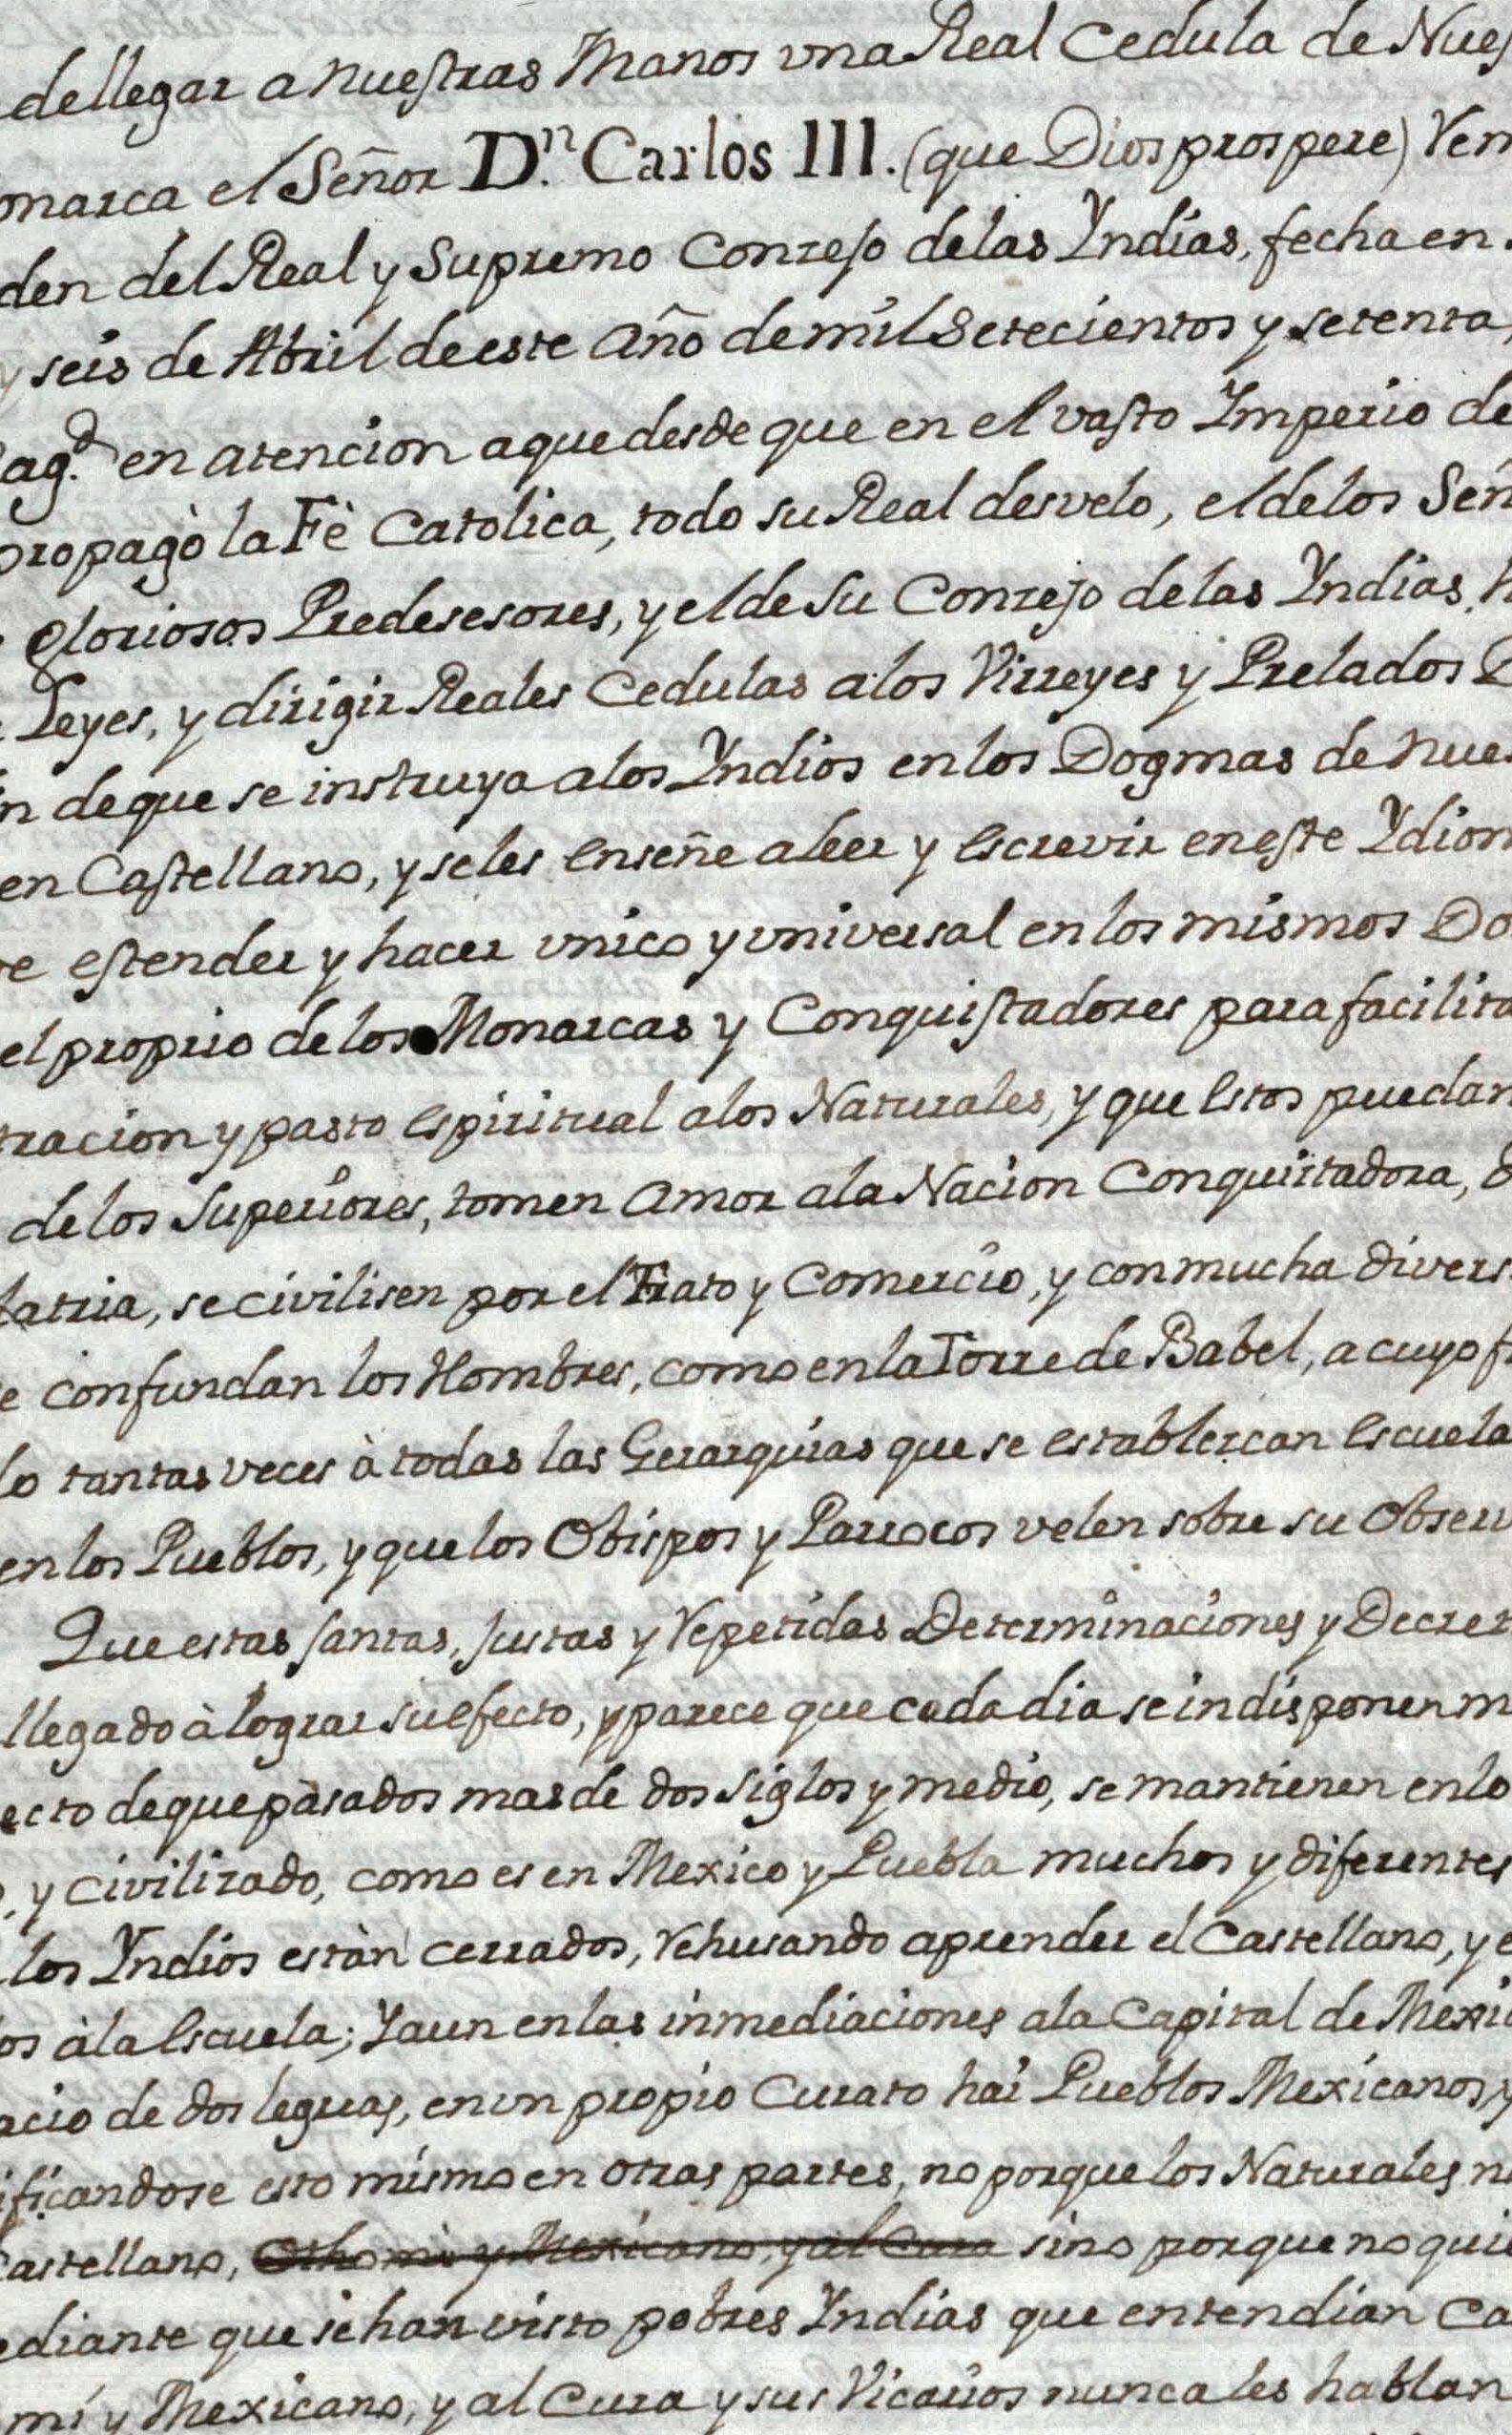 dellegar a nuestras Manos una Real Cedula de Nues
onarca el Señor D.n Carlos III. (que Dios prospere) Ven
den del Real y Supremo Conzejo delas Yndias, fecha en
y seis de Abril deeste Año demil Setecientos y setenta,
ag.d en atencion aquedesde que en el vasto Imperio de
propagò la Fè Catolica, todo su Real desvelo, el delos Señ
Gloriosos Predesesores, y elde Su Conzejo delas Yndias h
Leyes, y dirigir Reales Cedulas alos Virreyes y Prelados D
n deque se instruya alos Yndios enlos Dogmas de nues
en Castellano, y seles enseñe aleer y escrevir eneste Ydiom
e estender y hacer unico y universal enlos mismos Do
el proprio delos Monarcas y Conquistadores parafacilita
tracion y pasto espiritual alos Naturales, y que estos puedan
delos Superiores, tomen amor ala Nacion Conquistadora, d
latria, secivilisen por el Trato y Comercio, y conmucha divers
e confundan los Hombres, como enla Torre de Babel, a cuyo f
lo tantas veces à todas las Gerarquias que se establezcan escuela
enlos Pueblos, y quelos Obispos y Parrocos velen sobre su observ
Que estas santas, justas y repetidas Determinaciones y Decret
llegado à lograr suefecto, y parece que cada dia se indisponen m
ecto dequepasados masde dos Siglos y medio, se mantienen enlo
, y civilizado, como es en Mexico y Puebla muchos y diferentes
los Yndios estàn cerrados, rehusando aprender el Castellano, y e
os àla escuela; Yaun enlas inmediaciones ala Capital de Mexic
acio de dos leguas, enun propio Curato hai Pueblos Mexicanos, y
ificandose esto mismo en otras partes, no porque los Naturales n
astellano, Othomi y Mexicano, y al Cura sino porque no quie
ediante que sehan visto pobres Yndias que entendian Ca
mi y Mexicano, y al Cura y sus Vicarios nunca les hablan